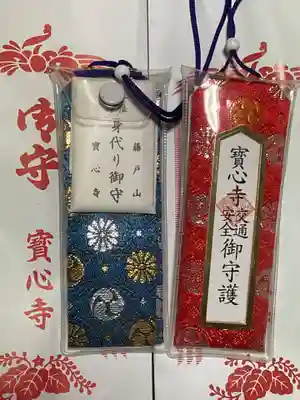 御守
寳心寺
身代り御守
藤戸山
寳心寺
寳心寺
交通安全
御守護